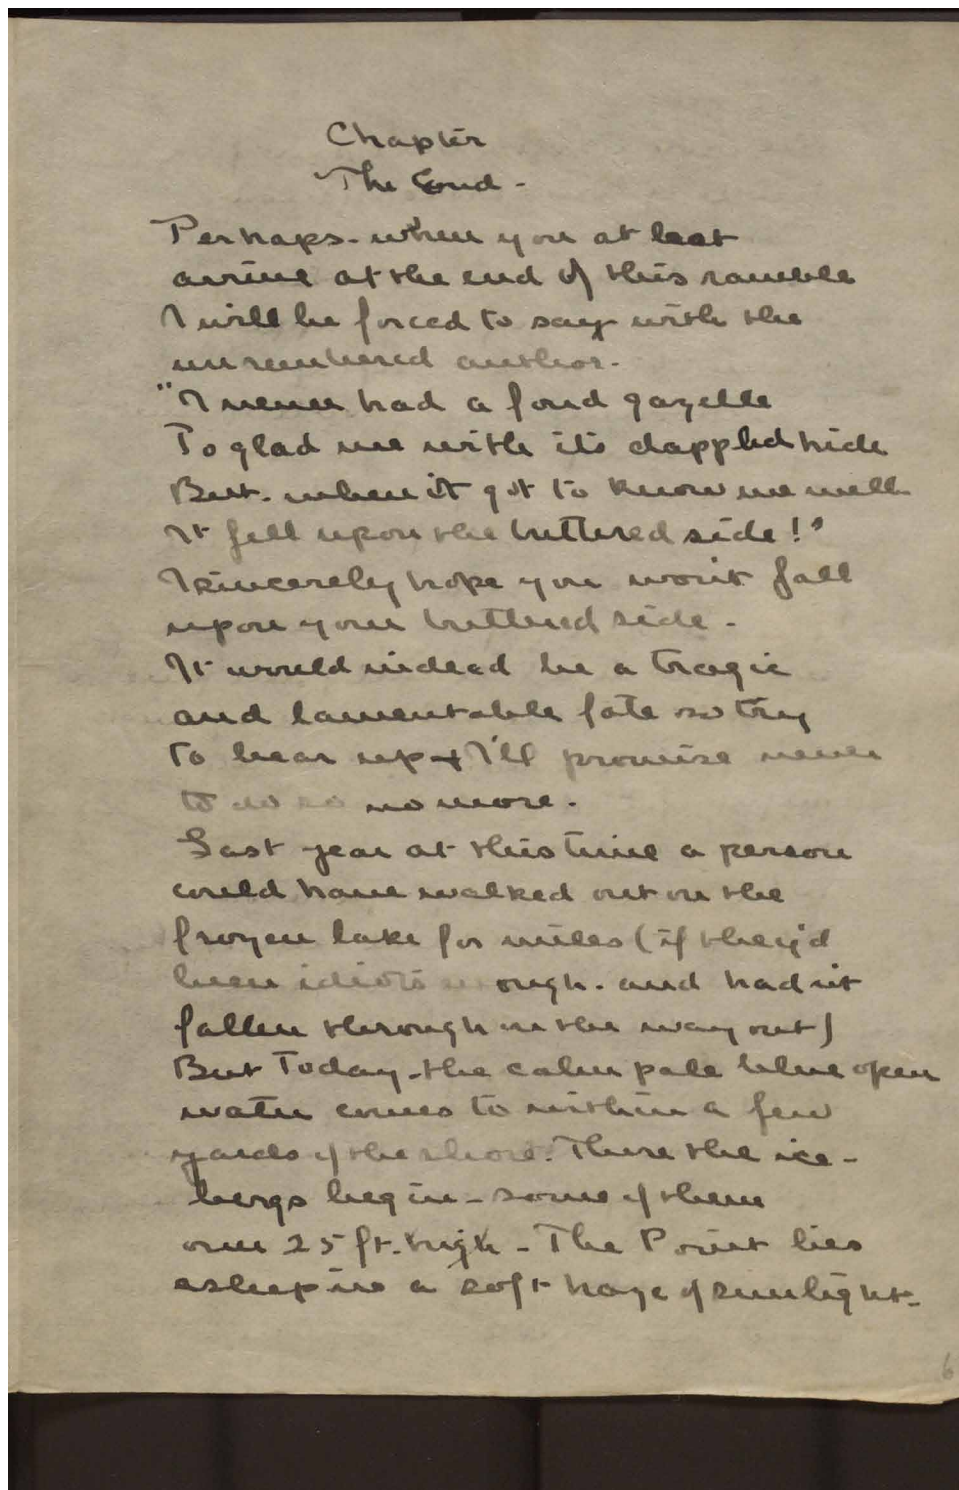 Chapter
The End -
Perhaps - when you at last
arrive at the end of this ramble
I will be forced to say with the
unremembered author -
"I never had a fond gazelle
To glad me with its dappled hide
But - when it got to know me well
It fell upon the buttered side!"
I sincerely hope you won't fall
upon your buttered side -
It would indeed be a tragic
and lamentable fate so try
to bear up + I'll promise never
to do so no more.
Last year at this time a person
could have walked out on the
frozen lake for miles (if they'd
been idiots enough - and hadn't
fallen through on the way out)
But Today - the calm pale blue open
water comes to within a few
yards of the shore. There the ice -
bergs begin - some of them
over 25 ft. high - The Point lies
asleep in a soft haze of sunlight -
6